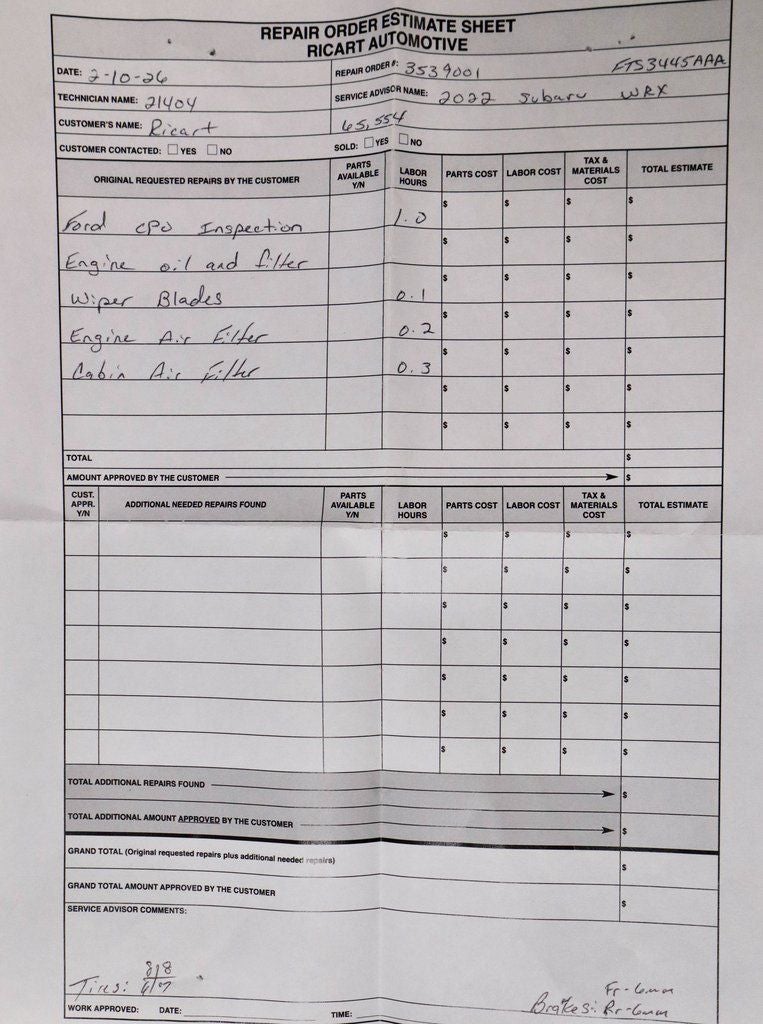 REPAIR ORDER ESTIMATE SHEET
RICART AUTOMOTIVE
DATE: 2-10-26 REPAIR ORDER #: 3539001 FTS3445AAA
TECHNICIAN NAME: 21404 SERVICE ADVISOR NAME: 2022 Subaru WRX
CUSTOMER'S NAME: Ricart 65,554
CUSTOMER CONTACTED: YES NO SOLD: YES NO
ORIGINAL REQUESTED REPAIRS BY THE CUSTOMER PARTS AVAILABLE Y/N LABOR HOURS PARTS COST LABOR COST TAX & MATERIALS COST TOTAL ESTIMATE
Ford CPO Inspection 1.0 $ $ $ $
Engine oil and filter $ $ $ $
Wiper Blades 0.1 $ $ $ $
Engine Air Filter 0.2 $ $ $ $
Cabin Air Filter 0.3 $ $ $ $
$ $ $ $
$ $ $ $
TOTAL $
AMOUNT APPROVED BY THE CUSTOMER $
CUST. APPR. Y/N ADDITIONAL NEEDED REPAIRS FOUND PARTS AVAILABLE Y/N LABOR HOURS PARTS COST LABOR COST TAX & MATERIALS COST TOTAL ESTIMATE
$ $ $ $
$ $ $ $
$ $ $ $
$ $ $ $
$ $ $ $
$ $ $ $
$ $ $ $
TOTAL ADDITIONAL REPAIRS FOUND $
TOTAL ADDITIONAL AMOUNT APPROVED BY THE CUSTOMER $
GRAND TOTAL (Original requested repairs plus additional needed repairs) $
GRAND TOTAL AMOUNT APPROVED BY THE CUSTOMER $
SERVICE ADVISOR COMMENTS:
8/8 Fr-6mm
Tires: 6/7 Brakes: Rr-6mm
WORK APPROVED: DATE: TIME: